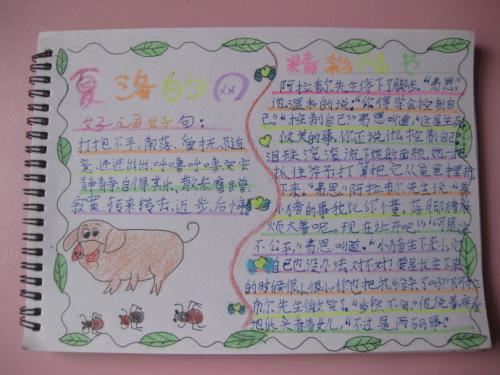 夏洛的网
好词好句:
打抱不平、角落、
进进出出、呼噜呼噜
静静、自得其乐、
寂寞、转来转去、
精彩片
阿拉布尔先生停下了脚步。“弗恩,”
他温和的说:“你得学会控制自
己。”“控制自己?”弗恩叫道,“这是生与
的事,你还说什么控制自己。”
泪珠滚滚流下她的面颊,她一把
抓住斧子打算把它从爸爸手里
下来。“弗恩,”阿拉布尔先生说:“养
小猪的事我比你懂。落脚猪
烦大着呢。现在让开吧!”“可是这
不公平,”弗恩叫道。“小猪生下来小,它
自己也没办法,对不对?要是我生下来
的时候很小很小,你也把我给杀了吗?”阿拉
布尔先生微笑了。“当然不会,”他说着
地低头看着女儿,“不过是两码事。”